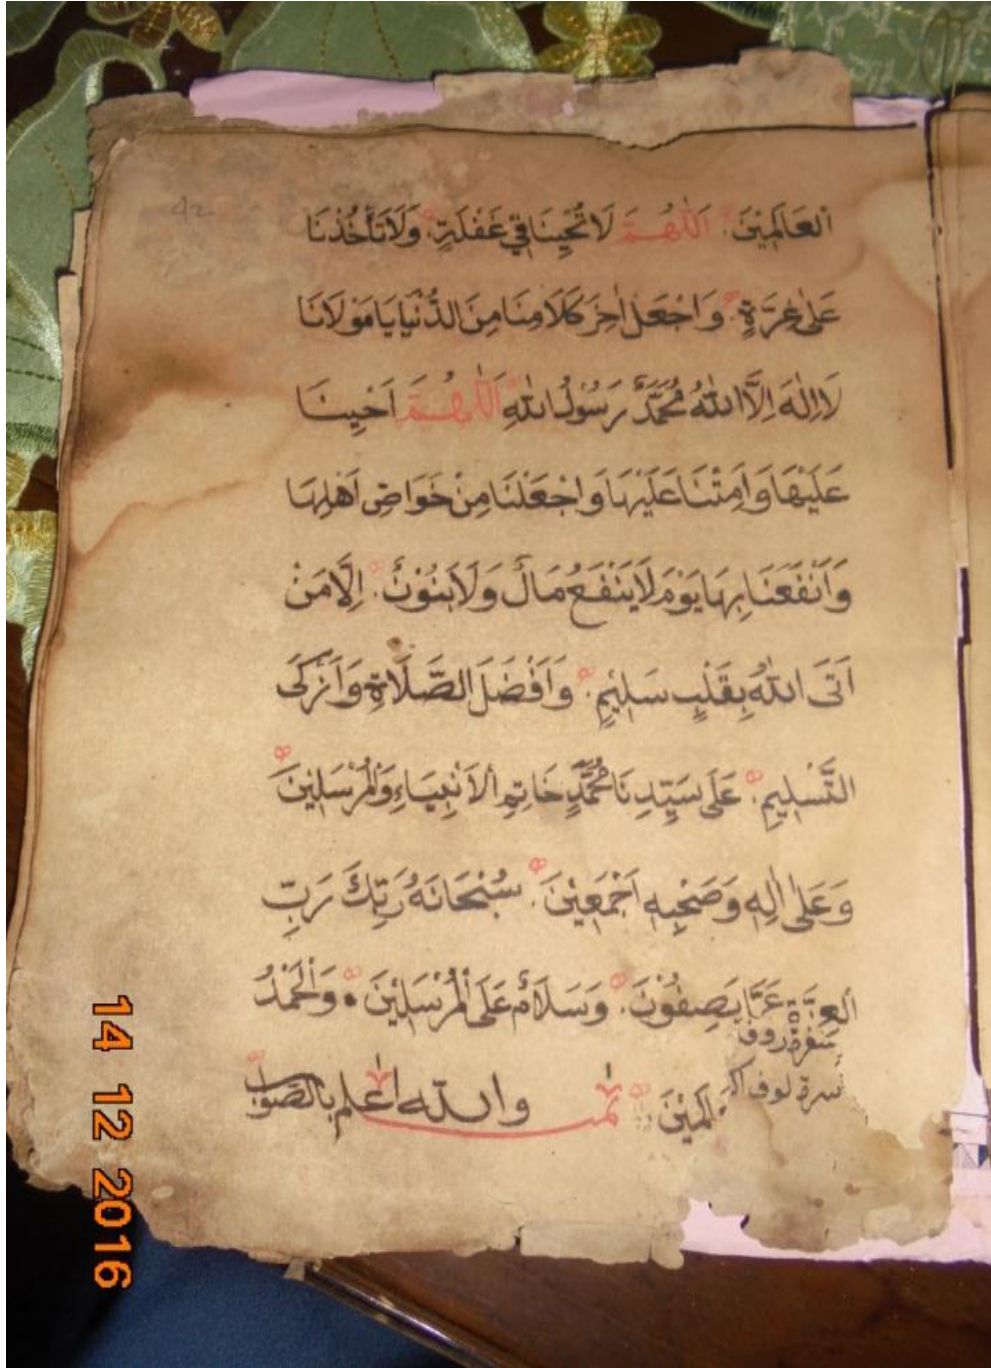 42
اَلعَالَمِيْنَ. اَللّٰهُمَّ لَا تُحْيِنَا فِي غَفْلَةٍ. وَلَا تَأْخُذْنَا
عَلٰى غِرَّةٍ. وَاجْعَلْ اٰخِرَ كَلَامِنَا مِنَ الدُّنْيَا يَا مَوْلَانَا
لَا اِلٰهَ اِلَّا اللّٰهُ مُحَمَّدٌ رَسُوْلُ اللّٰهِ اَللّٰهُمَّ اَحْيِنَا
عَلَيْهَا وَاَمِتْنَا عَلَيْهَا وَاجْعَلْنَا مِنْ خَوَاصِّ اَهْلِهَا
وَاَنْفَعَنَا بِهَا يَوْمَ لَا يَنْفَعُ مَالٌ وَلَا بَنُوْنٌ. اِلَّا مَنْ
اَتَى اللّٰهُ بِقَلْبٍ سَلِيْمٍ. وَاَفْضَلَ الصَّلَاةِ وَاَزْكَى
التَّسْلِيمِ. عَلَى سَيِّدِنَا مُحَمَّدٍ خَاتِمِ اْلاَنْبِيَاءِ وَاْلمُرْسَلِيْنَ
وَعَلٰى اٰلِهِ وَصَحْبِهِ اَجْمَعِيْنَ. سُبْحَانَهُ رَبِّكَ رَبِّ
اْلعِزَّةِ عَمَّا يَصِفُوْنَ. وَسَلَامٌ عَلَى اْلمُرْسَلِيْنَ. وَاْلحَمْدُ
لَمِيْنَ. تمت والله اعلم بالصواب
14 12 2016